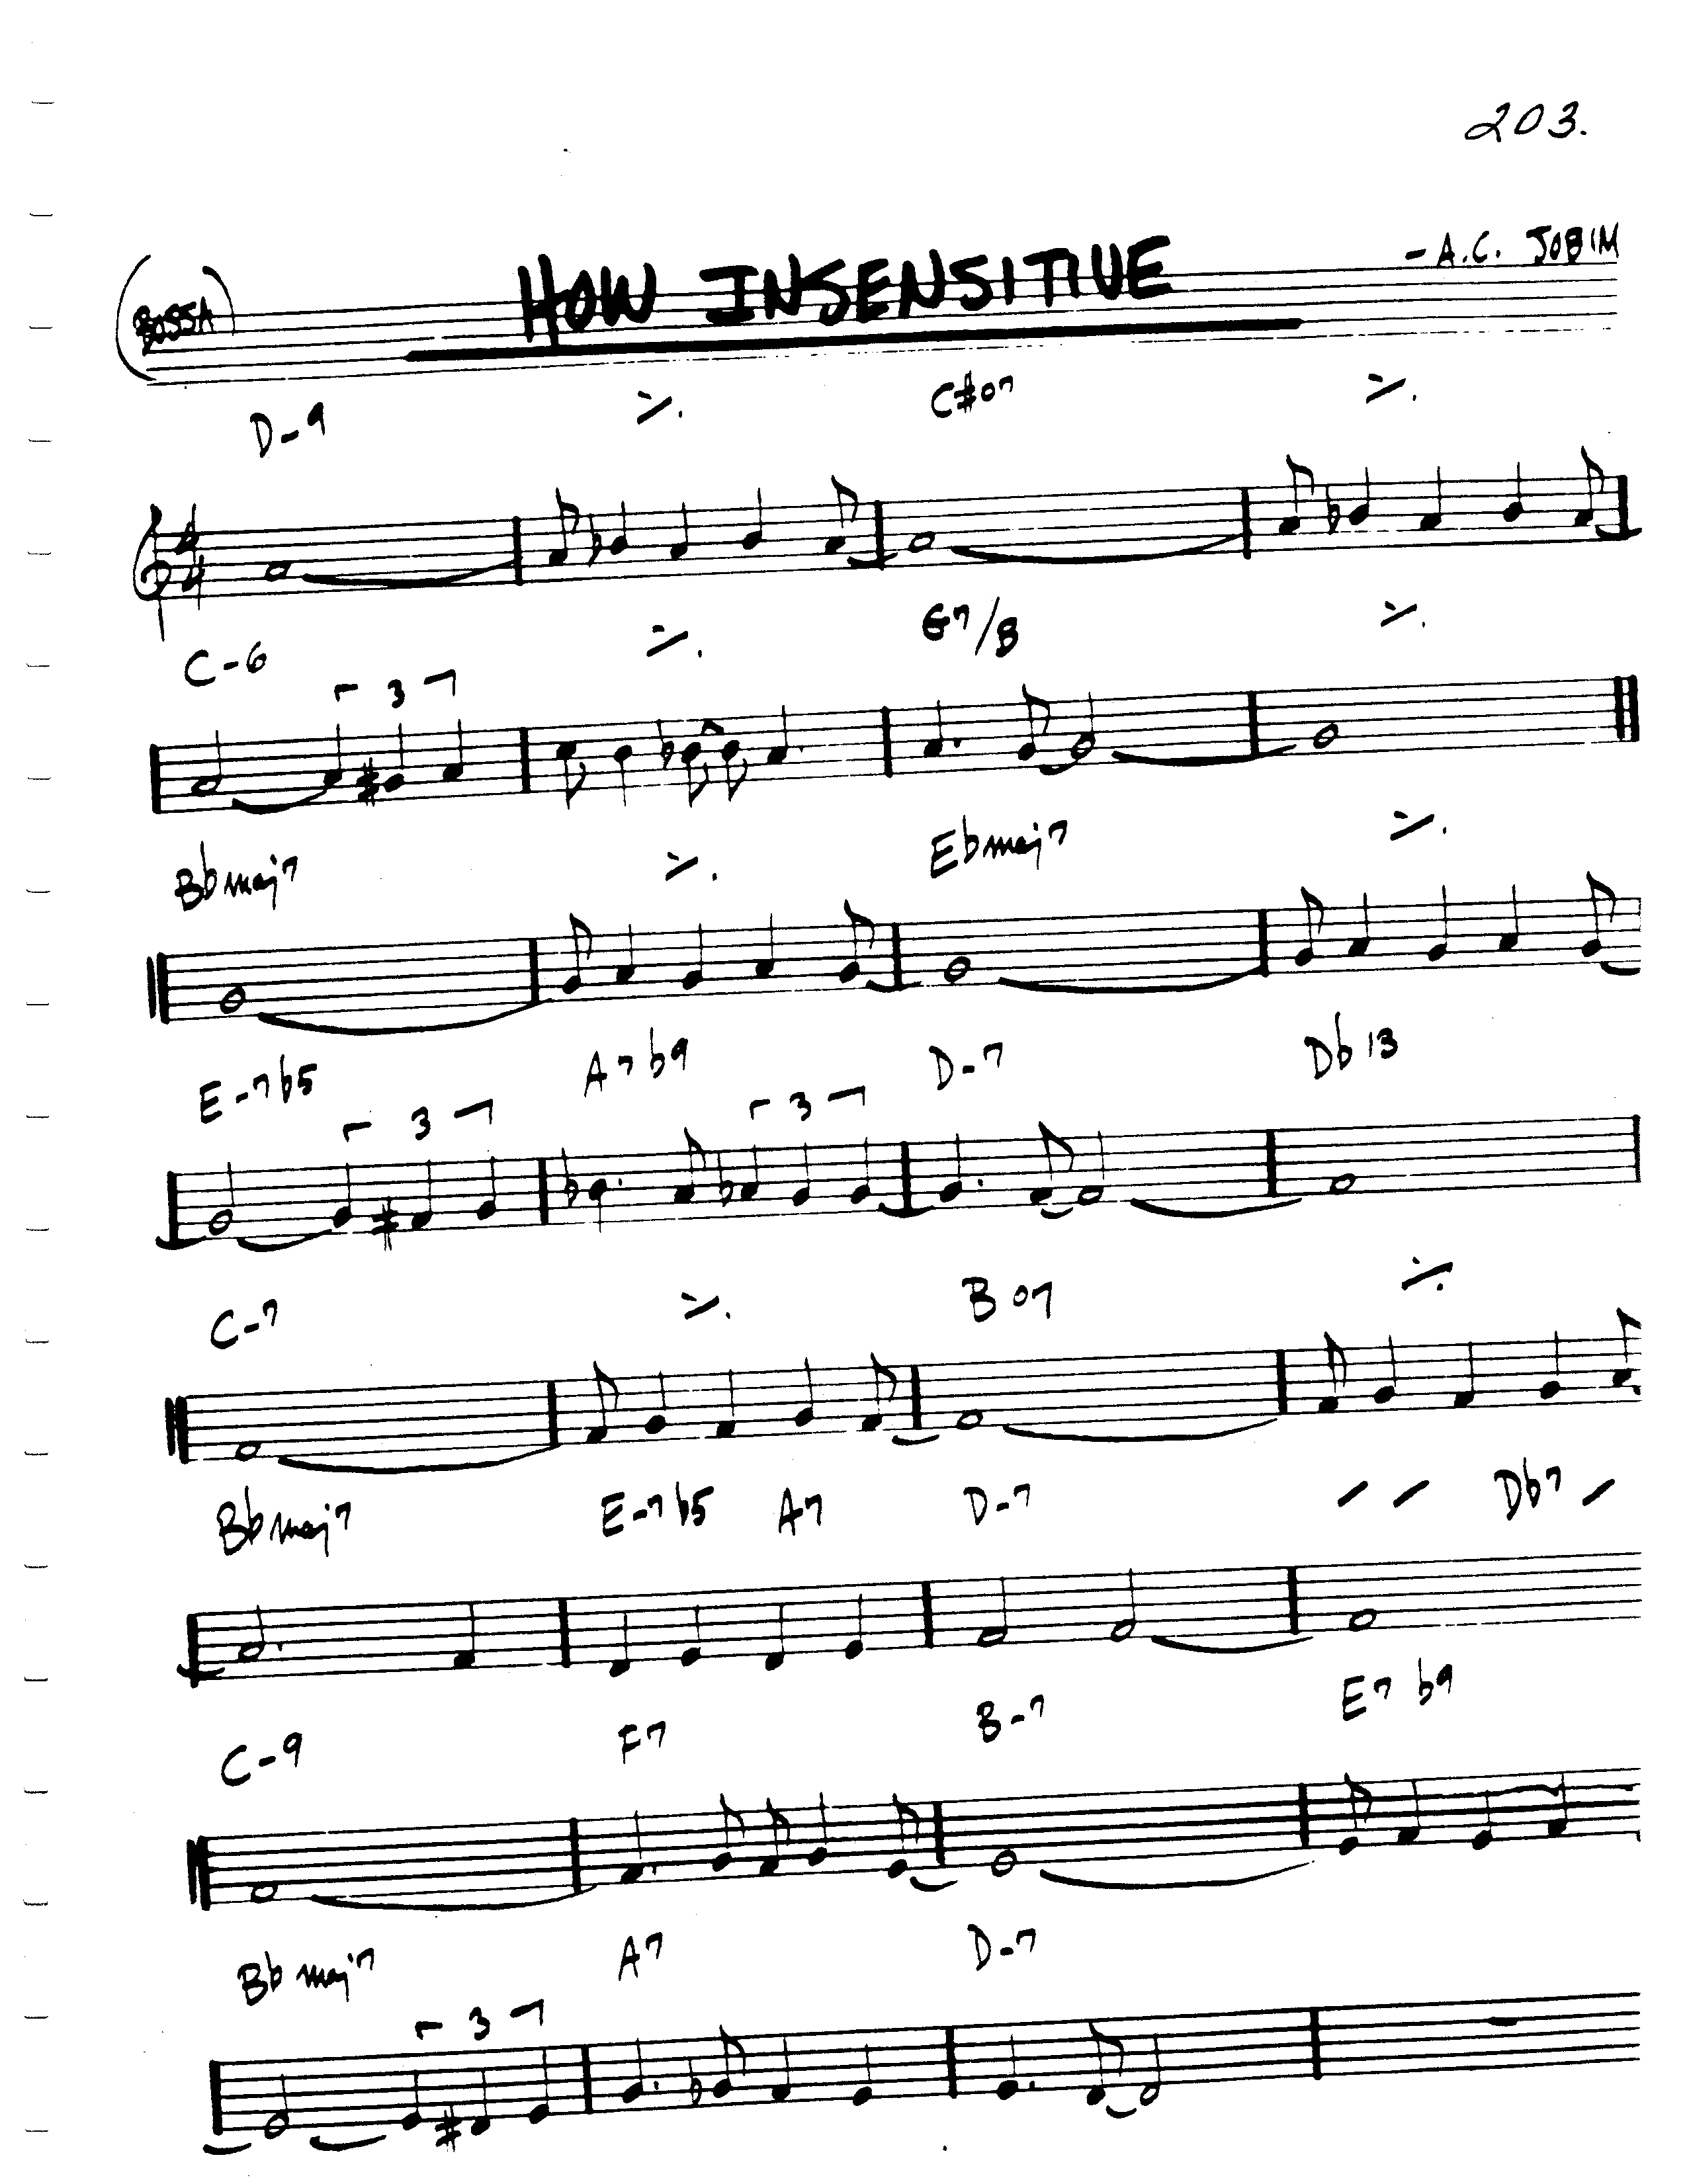 203.
(BOSSA) HOW INSENSITIVE - A.C. JOBIM
D-9 ٪ C#o7 ٪
C-6 ٪ G7/B ٪
3
Bbmaj7 ٪ Ebmaj7 ٪
E-7b5 A7b9 D-7 Db13
3 3
C-7 ٪ Bo7 ٪
Bbmaj7 E-7b5 A7 D-7 / / Db7 /
C-9 F7 B-7 E7b9
Bbmaj7 A7 D-7
3